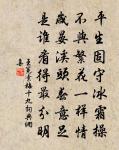 平生固守冰霜操
不與繁花一樣情
歲晏溪頭春意足
是誰看得最分明
王冕素梅十九